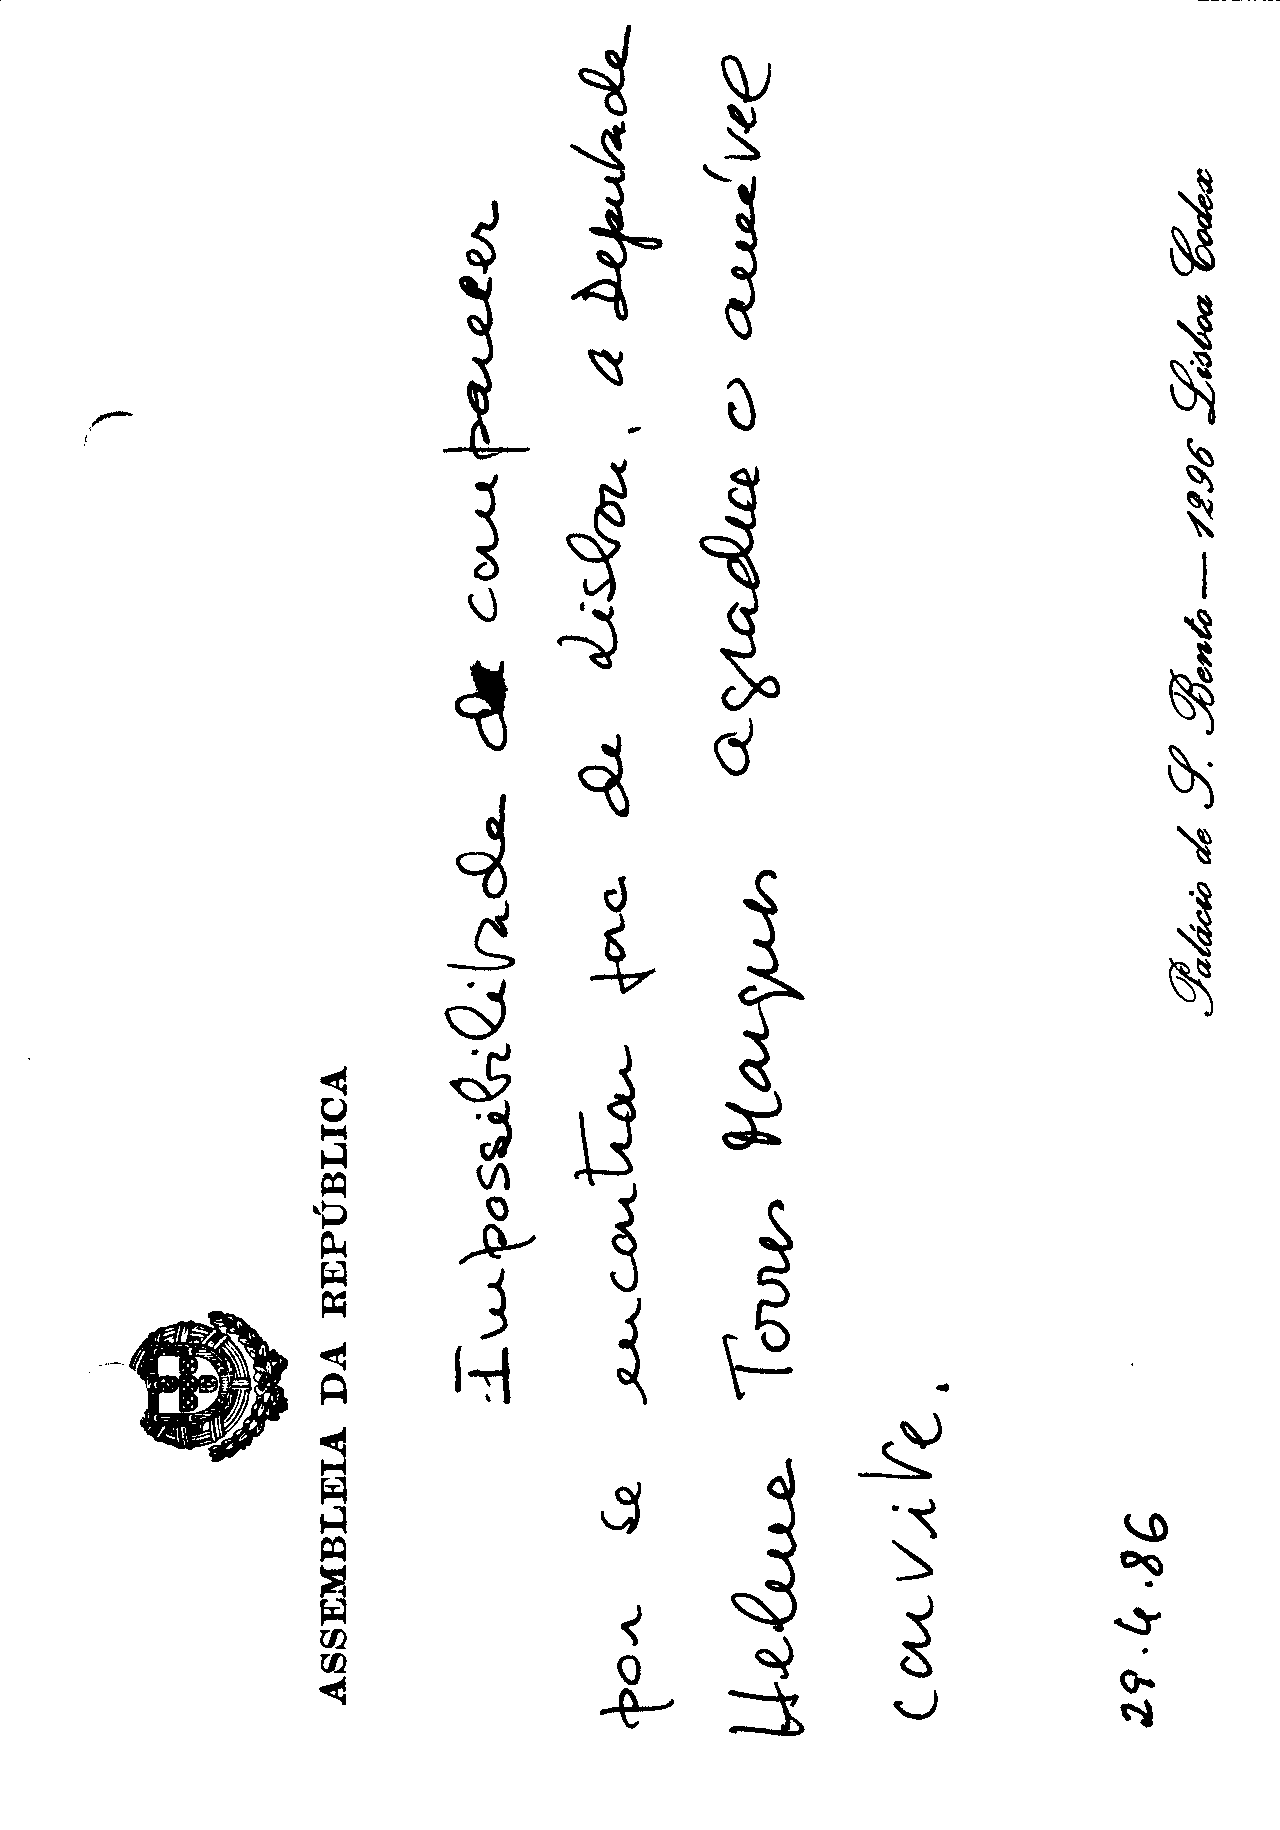 ASSEMBLEIA DA REPÚBLICA
Impossibilitada de comparecer
por se encontrar fora de Lisboa, a Deputada
Helena Torres Marques agradece o amável
convite.
29.4.86
Palácio de S. Bento — 1296 Lisboa Codex